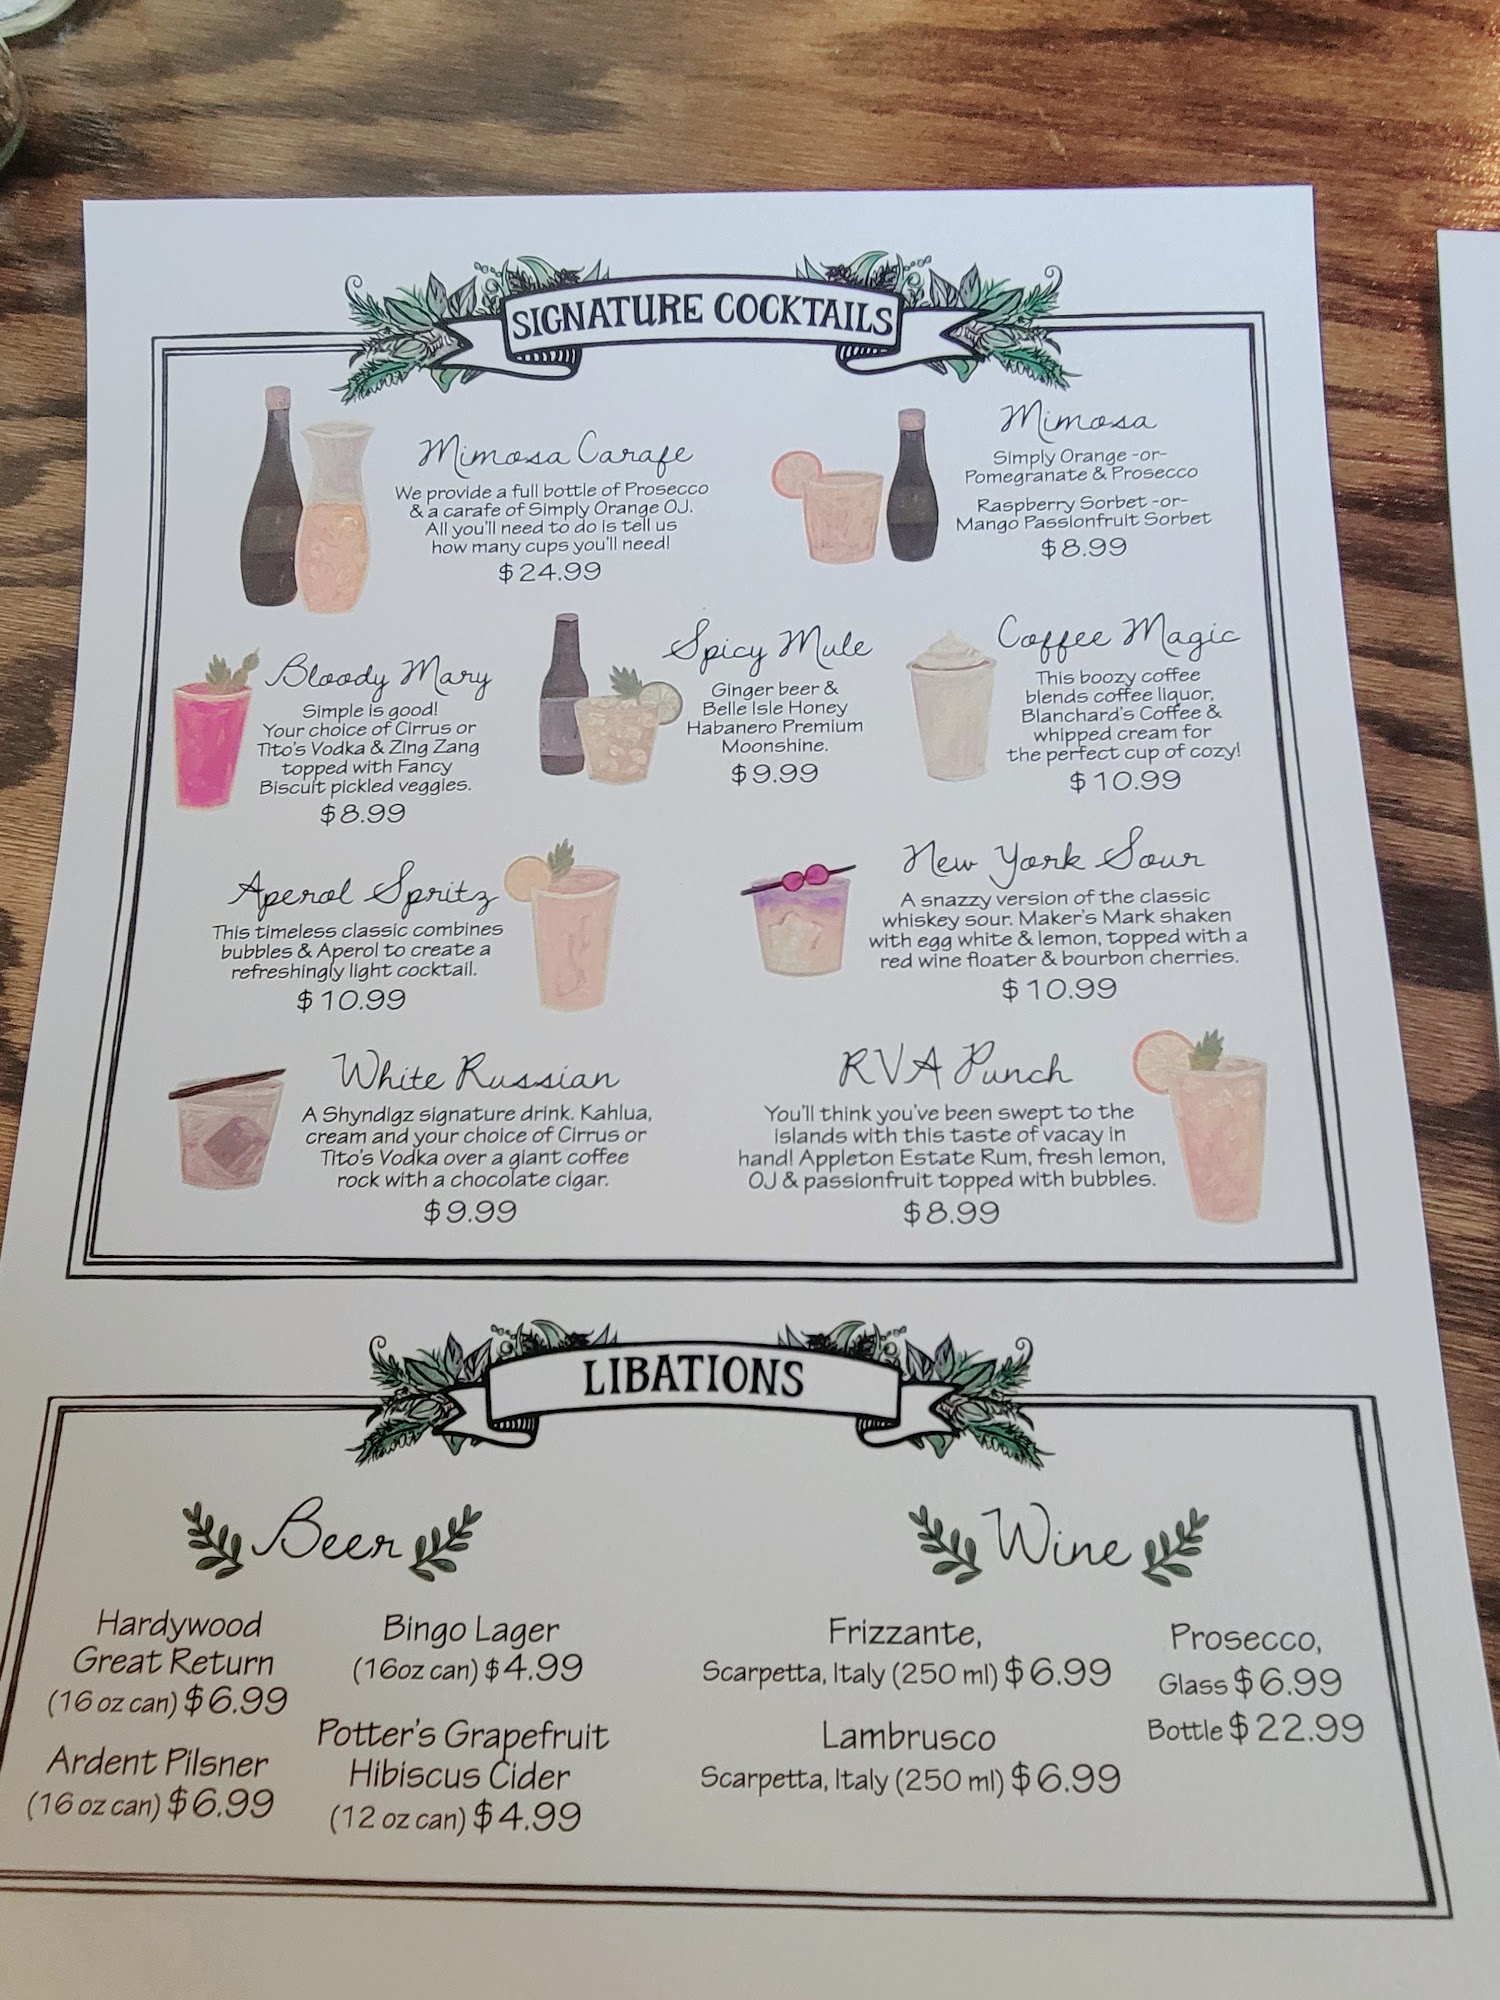 SIGNATURE COCKTAILS
Mimosa Carafe
We provide a full bottle of Prosecco
& a carafe of Simply Orange OJ.
All you'll need to do is tell us
how many cups you'll need!
$24.99
Mimosa
Simply Orange -or-
Pomegranate & Prosecco
Raspberry Sorbet -or-
Mango Passionfruit Sorbet
$8.99
Bloody Mary
Simple is good!
Your choice of Cirrus or
Tito's Vodka & Zing Zang
topped with Fancy
Biscuit pickled veggies.
$8.99
Spicy Mule
Ginger beer &
Belle Isle Honey
Habanero Premium
Moonshine.
$9.99
Coffee Magic
This boozy coffee
blends coffee liquor,
Blanchard's Coffee &
whipped cream for
the perfect cup of cozy!
$10.99
Aperol Spritz
This timeless classic combines
bubbles & Aperol to create a
refreshingly light cocktail.
$10.99
New York Sour
A snazzy version of the classic
whiskey sour. Maker's Mark shaken
with egg white & lemon, topped with a
red wine floater & bourbon cherries.
$10.99
White Russian
A Shyndigz signature drink. Kahlua,
cream and your choice of Cirrus or
Tito's Vodka over a giant coffee
rock with a chocolate cigar.
$9.99
RVA Punch
You'll think you've been swept to the
islands with this taste of vacay in
hand! Appleton Estate Rum, fresh lemon,
OJ & passionfruit topped with bubbles.
$8.99
LIBATIONS
Beer
Hardywood
Great Return
(16 oz can) $6.99
Ardent Pilsner
(16 oz can) $6.99
Bingo Lager
(16oz can) $4.99
Potter's Grapefruit
Hibiscus Cider
(12 oz can) $4.99
Wine
Frizzante,
Scarpetta, Italy (250 ml) $6.99
Lambrusco
Scarpetta, Italy (250 ml) $6.99
Prosecco,
Glass $6.99
Bottle $22.99